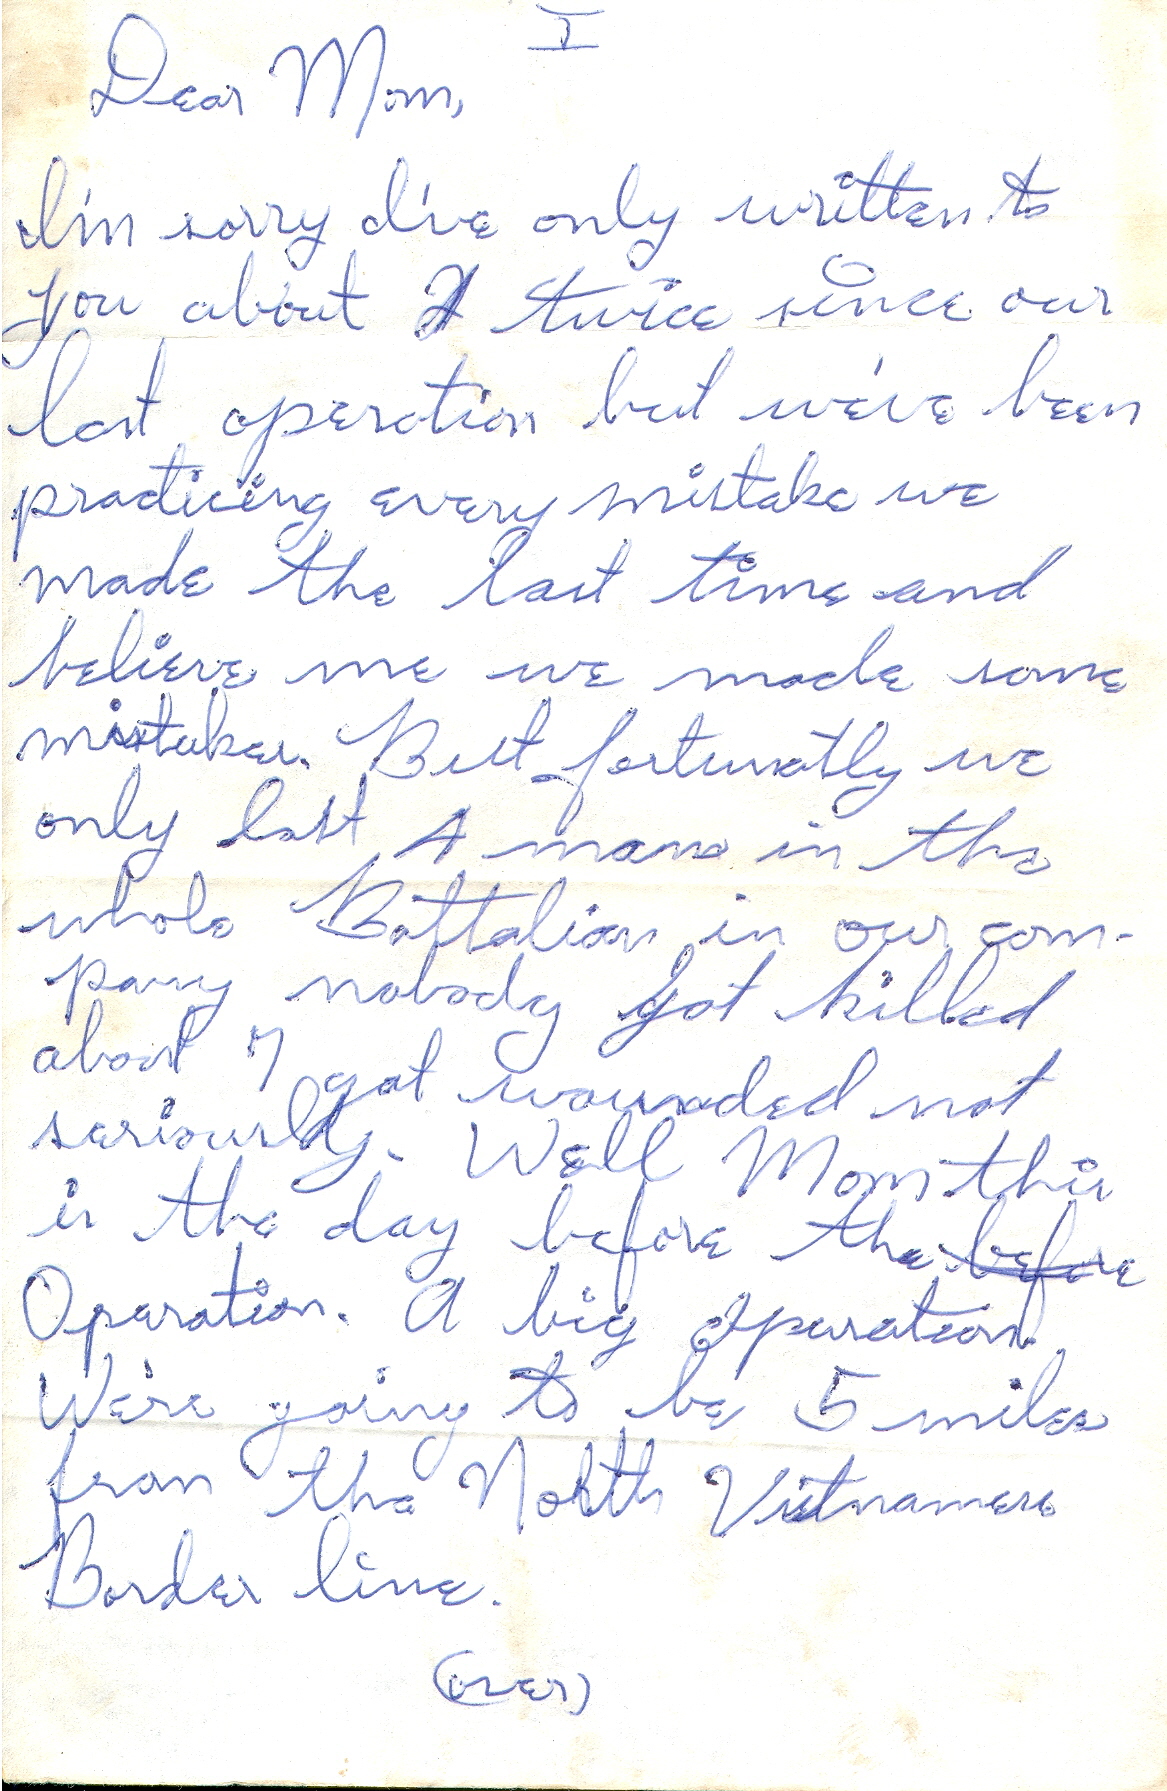 I
Dear Mom,
I'm sorry I've only written to
you about twice since our
last operation but we've been
practicing every mistake we
made the last time and
believe me we made some
mistakes. But fortunatly we
only lost 4 mans in the
whole Battalion in our com-
pany nobody got killed
about 7 got wounded not
seriously. Well Mom this
is the day before the before
Operation. A big operation.
We're going to be 5 miles
from the North Vietnamese
Border line.
(over)